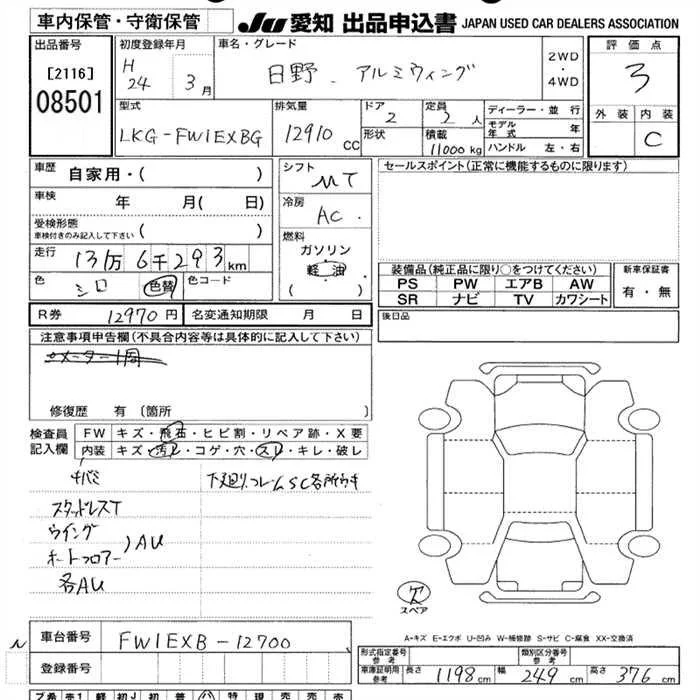 車内保管・守衛保管 JU 愛知 出品申込書 JAPAN USED CAR DEALERS ASSOCIATION
出品番号
[2116]
08501
初度登録年月
H
24 3月
車名・グレード
日野. アルミウィング
2WD
・
4WD
評価点
3
型式
LKG-FW1EXBG
排気量
12910 CC
ドア
2
形状
定員
2 人
積載
11000 kg
ディーラー・並 行
モデル
年 式 年
ハンドル 左・右
外装 内装
C
車歴 自家用・( )
車検 年 月( 日)
受検形態
車検付きのみ記入して下さい ( )
走行 13万 6千 293 km
色 シロ 色替 色コード
シフト
MT
冷房
AC
燃料
ガソリン
軽油
( )
セールスポイント(正常に機能するものに限ります)
装備品(純正品に限り○をつけてください)
PS PW エアB AW
SR ナビ TV カワシート
新車保証書
有・無
R券 12970 円 名変通知期限 月 日
後日品
注意事項申告欄(不具合内容等は具体的に記入して下さい)
メーター1周
修復歴 有 〔箇所
検査員
記入欄
FW キズ・飛石・ヒビ割・リペア跡・X要
内装 キズ・汚レ・コゲ・穴・スレ・キレ・破レ
チバミ
下廻リ.フレームSC各所ウキ
スタッドレスT
ウイング
オートフロアー )AU
各AU
スペア
A-キズ E-エクボ U-凹み W-補修跡 S-サビ C-腐食 XX-交換済
車台番号 FW1EXB-12700
登録番号
形式指定番号
参考
類別区分番号
参考
車庫証明用
参考
長さ 1198 cm 幅 249 cm 高さ 376 cm